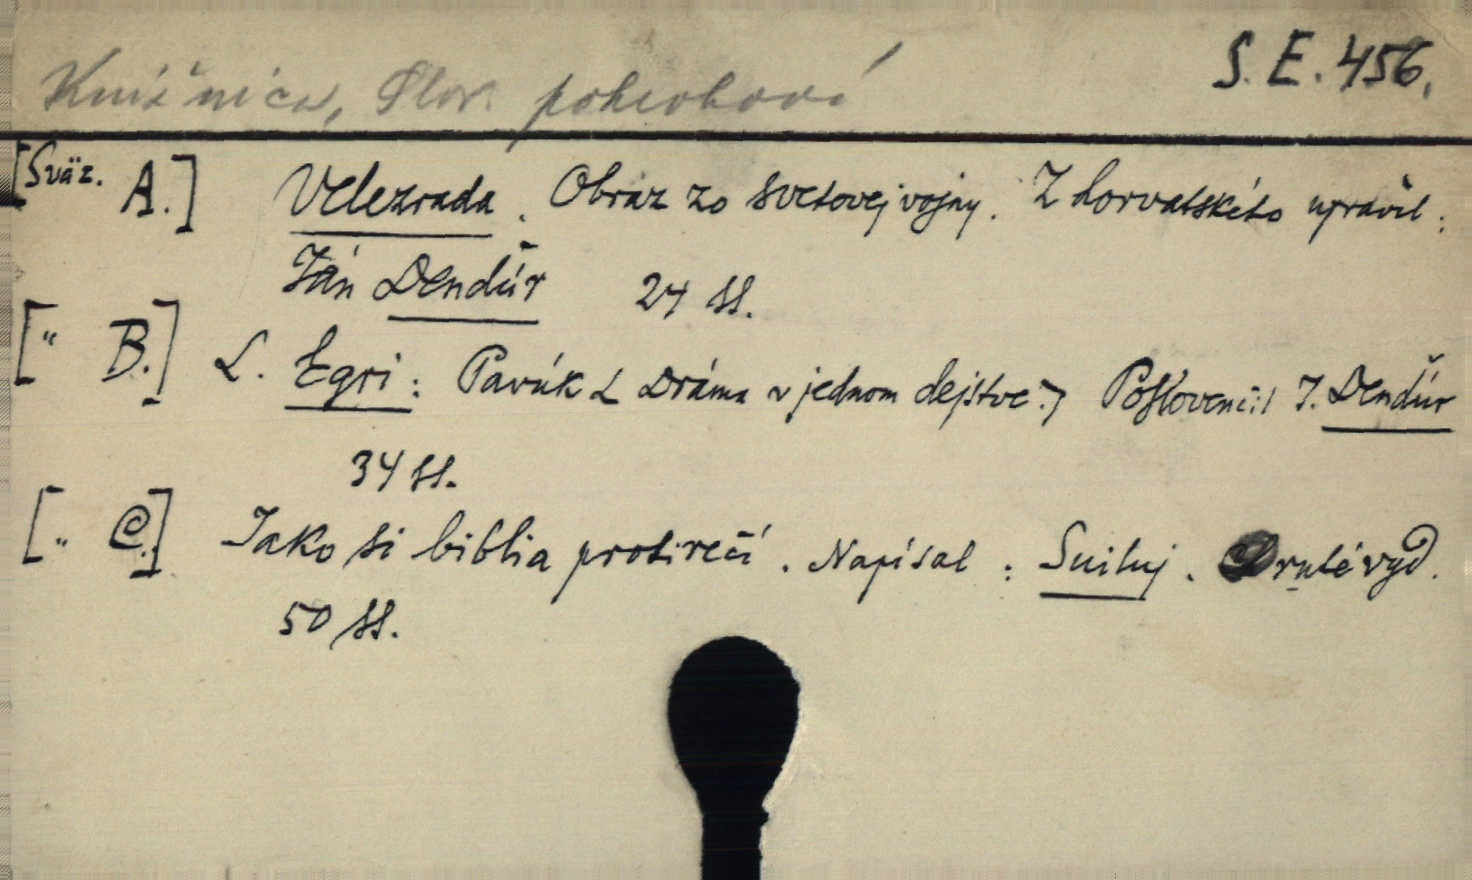 Knižnica, Slov. pokroková
S. E. 456.
[Sväz. A.] Velezrada. Obraz zo svetovej vojny. Z horvatského upravil:
Ján Dendúr 24 ss.
[" B.] L. Egri: Pavúk [Dráma v jednom dejstve.] Poslovenčil J. Dendúr
34 ss.
[" C.] Jako si biblia protirečí. Napísal: . Druhé vyd.
50 ss.